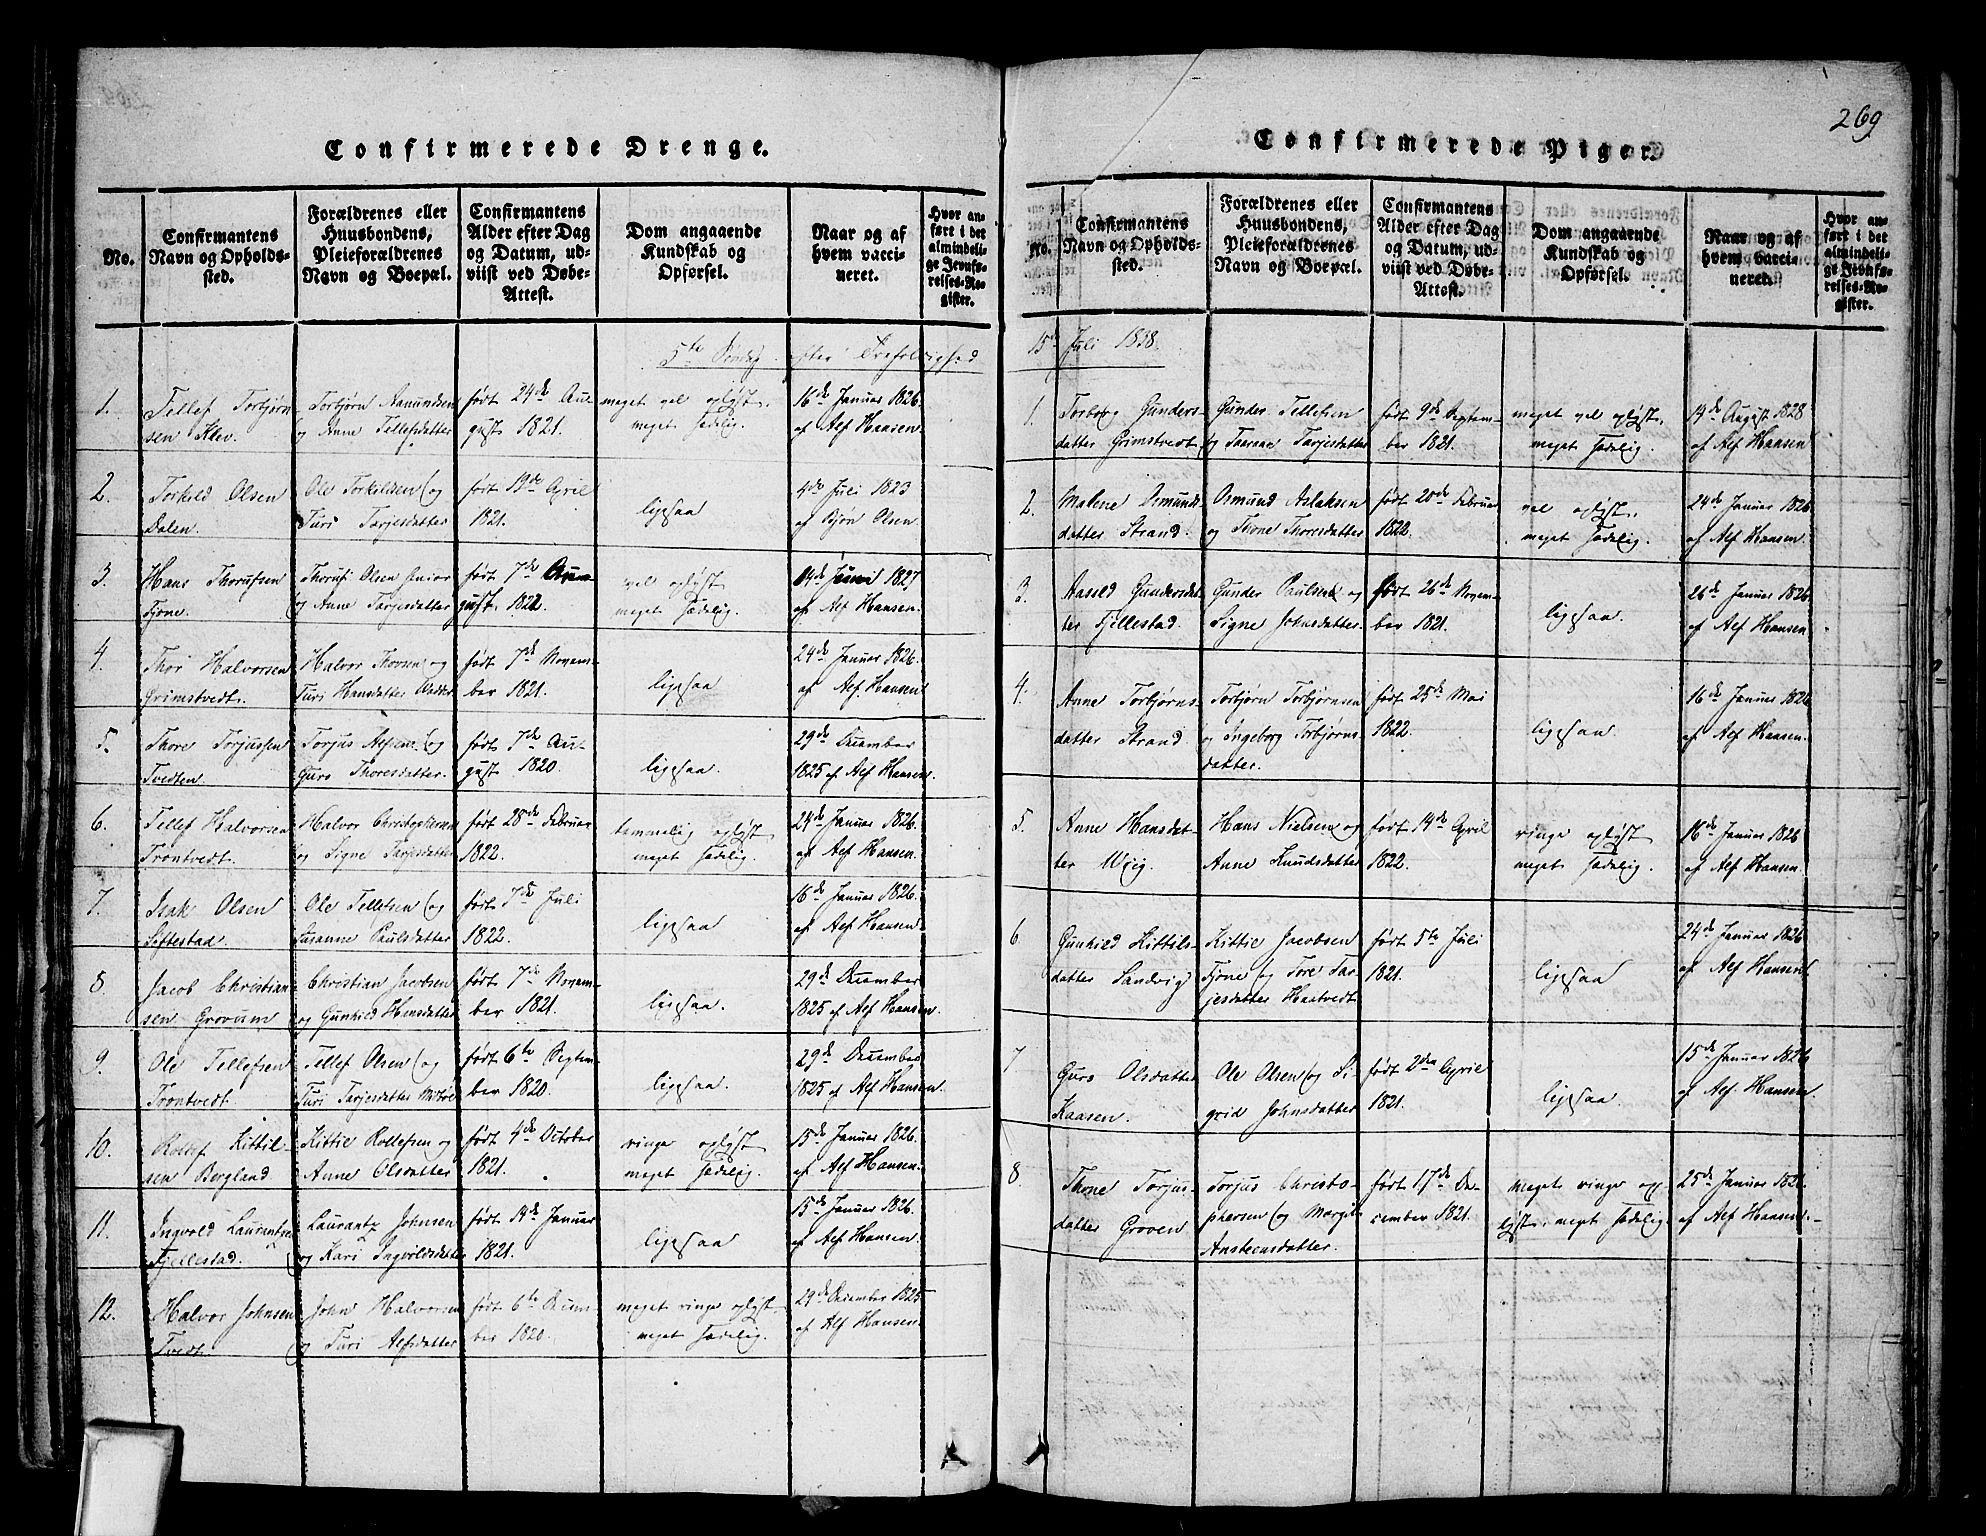 269
Confirmerede Drenge.
No.
Confirmantens
Navn og Opholds-
sted.
Forældrenes eller
Huusbondens,
Pleieforældrenes
Navn og Boepæl.
Confirmantens
Alder efter Dag
og Datum, ud-
viist ved Døbe-
Attest.
Dom angaaende
Kundskab og
Opførsel.
Naar og af
hvem vacci-
neret.
Hvor an-
ført i det
almindeli-
ge Jevnfø-
relses-Re-
gister.
5te Søndag efter Trefoldighed
1.
Tellef Torbjørn
sen Klev.
Torbjørn Aanundsen
og Anne Tellefsdatter
født 24de Au-
gust 1821.
meget vel oplyst.
meget sædelig.
16de Januar 1826.
af Alf Hansen.
2.
Torkild Olsen
Dalen.
Ole Torkildsen og
Turi Tarjesdatter
født 19de April
1821.
ligesaa
4de Juli 1823
af Bjørn Olsen.
3.
Hans Thorufsen
Fjone.
Thoruf Olsen Junior
og Anne Tarjesdatter
født 7de Au-
gust. 1822.
vel oplyst
meget sædelig.
14de Juni 1827
af Alf Hansen.
4.
Thor Halvorsen
Grimstvedt.
Halvor Thorsen og
Turi Hansdatter
født 7de Novem-
ber 1821.
ligesaa
24de Januar 1826.
af Alf Hansen
5.
Thore Torjussen
Tvedten.
Torjus Alfsen og
Guro Thoresdatter.
født 7de Au-
gust 1820.
ligesaa.
29de December
1825 af Alf Hansen.
6.
Tellef Halvorsen
Trontvedt.
Halvor Christophersen
og Signe Tarjesdatter
født 28de Februar
1822.
temmelig oplyst
meget sædelig.
24de Januar 1826.
af Alf Hansen.
7.
Isak Olsen
Siftestad.
Ole Tellefsen og
Susanne Paulsdatter
født 7de Juli
1822.
ligesaa
16de Januar 1826.
af Alf Hansen.
8.
Jacob Christian-
sen Grovum
Christian Jacobsen
og Gunhild Hansdatter
født 7de Novem-
ber 1821.
ligesaa.
29de December
1825 af Alf Hansen.
9.
Ole Tellefsen
Trontvedt.
Tellef Olsen og
Turi Tarjesdatter
født 6te Septem-
ber 1820.
ligesaa.
29de December
1825 af Alf Hansen.
10.
Rollef Kittil-
sen Bergland
Kittil Rollefsen og
Anne Olsdatter
født 4de October
1821.
ringe oplyst
meget sædelig.
15de Januar 1826.
af Alf Hansen.
11.
Ingvold Laurantzen
Fjellestad.
Laurantz Johnsen
og Kari Ingvoldsdatter
født 14de Januar
1821.
ligesaa
15de Januar 1826.
af Alf Hansen.
12.
Halvor Johnsen
Tvedt.
John Halvorsen
og Turi Alfsdatter
født 6te Decem-
ber 1820.
meget ringe oplyst
meget sædelig.
29de December 1825
af Alf Hansen.
Confirmerede Piger.
No.
Confirmantens
Navn og Opholds-
sted.
Forældrenes eller
Huusbondens,
Pleieforældrenes
Navn og Boepæl.
Confirmantens
Alder efter Dag
og Datum, ud-
viist ved Døbe-
Attest.
Dom angaaende
Kundskab og
Opførsel.
Naar og af
hvem vacci-
neret.
Hvor an-
ført i det
almindeli-
ge Jevnfø-
relses-Re-
gister.
15de Juli 1838.
1.
Torborg Gunders-
datter Grimstvedt
Gunder Tellefsen
og Taarane Tarjesdatter
født 9de Septem-
ber 1821.
meget vel oplyst.
meget sædelig.
14de August 1828
af Alf Hansen
2.
Malene Osmunds
datter Strand.
Osmund Aslaksen
og Thone Thoresdatter
født 20de Februar
1822.
vel oplyst.
meget sædelig.
24de Januar 1826.
af Alf Hansen.
3.
Aasild Gundersdat-
ter Fjellestad.
Gunder Paulsen og
Signe Johnsdatter.
født 26de Novem-
ber 1821.
ligesaa.
26de Januar 1826.
af Alf Hansen
4.
Anne Torbjørns-
datter Strand
Torbjørn Torbjørnsen
og Ingeborg Torbjørns-
datter.
født 25de Mai
1822.
ligesaa
16de Januar 1826
af Alf Hansen.
5.
Anne Hansdat-
ter Wiig.
Hans Nielsen og
Anne Knudsdatter
født 14de April
1822.
ringe oplyst
meget sædelig.
16de Januar 1826
af Alf Hansen.
6
Gunhild Kittils-
datter Sandvig
Kittil Jacobsen
Fjone og Tore Tar-
jesdatter Haatvedt
født 5te Juli
1821.
ligesaa
24de Januar 1826
af Alf Hansen
7
Guro Olsdatter
Kaasen.
Ole Olsen og Si-
grid Johnsdatter
født 2den April
1821.
ligesaa.
15de Januar 1826
af Alf Hansen
8
Thone Torjus-
datter Groven
Torjus Christo-
phersen og Margit
Ansteensdatter.
født 17de De-
cember 1821.
meget ringe op-
lyst. meget sædelig.
25de Januar 1826.
af Alf Hansen.